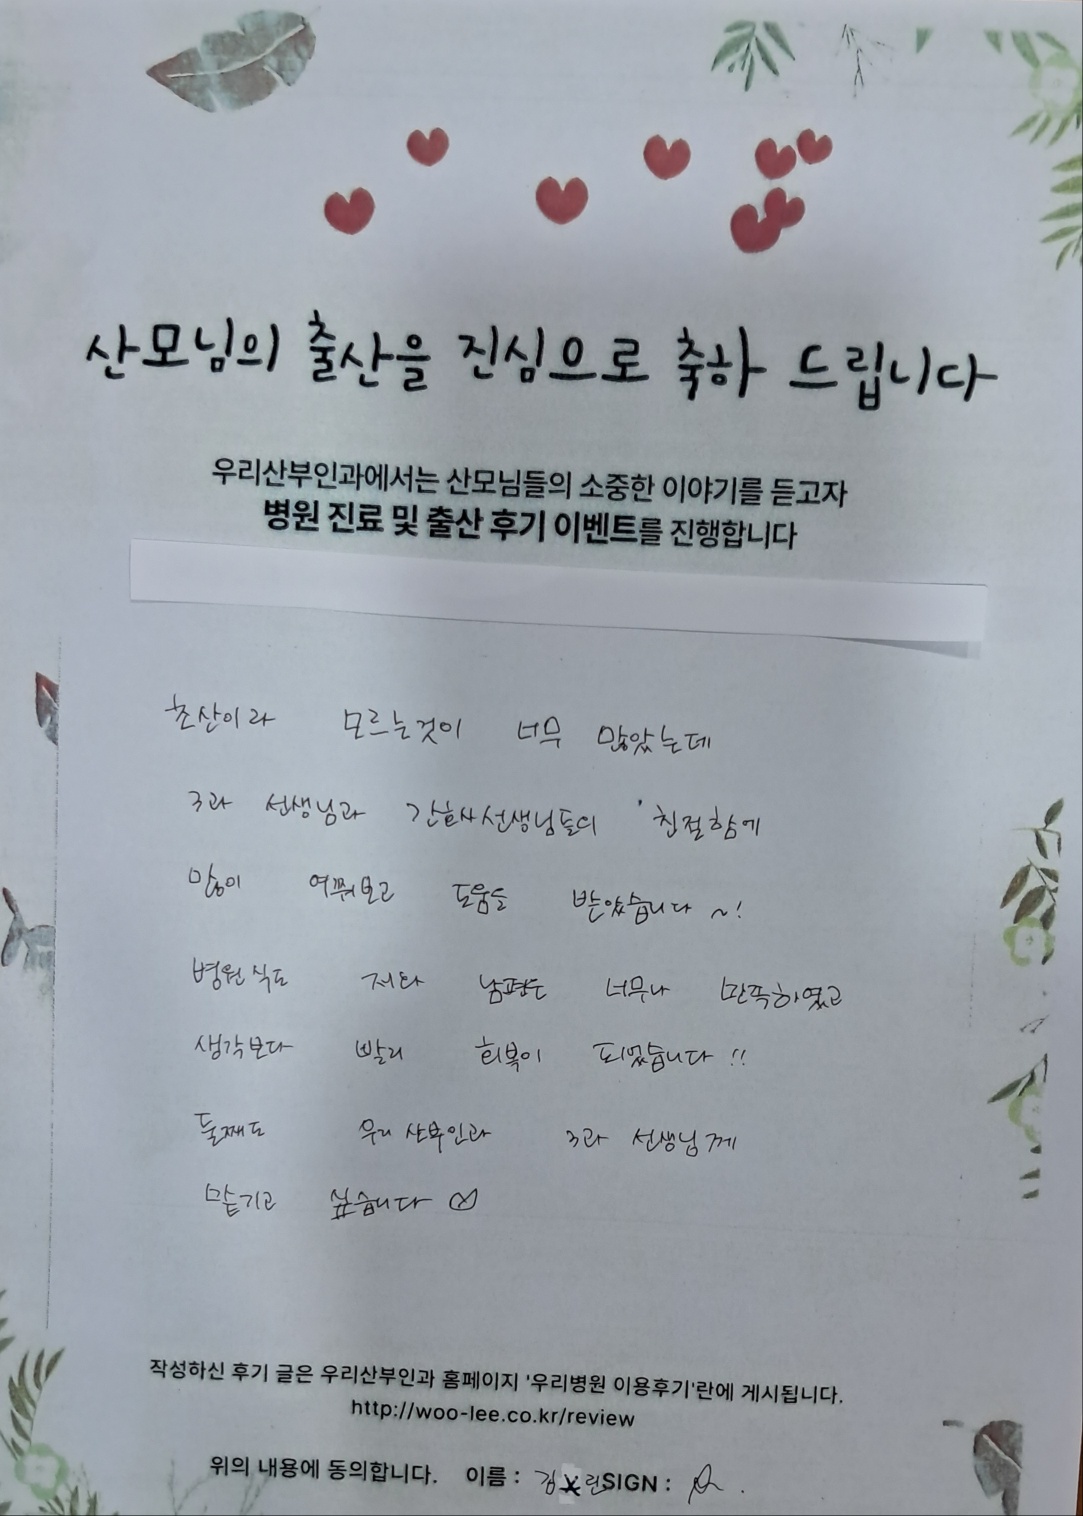 산모님의 출산을 진심으로 축하 드립니다
우리산부인과에서는 산모님들의 소중한 이야기를 듣고자
병원 진료 및 출산 후기 이벤트를 진행합니다
초산이라 모르는것이 너무 많았는데
3과 선생님과 간호사선생님들의 친절함에
많이 여쭤보고 도움을 받았습니다 ~!
병원식도 저와 남편도 너무나 만족하였고
생각보다 빨리 회복이 되었습니다 !!
둘째도 우리 산부인과 3과 선생님께
맡기고 싶습니다
작성하신 후기 글은 우리산부인과 홈페이지 '우리병원 이용후기'란에 게시됩니다.
http://woo-lee.co.kr/review
위의 내용에 동의합니다. 이름 : 김*린 SIGN :